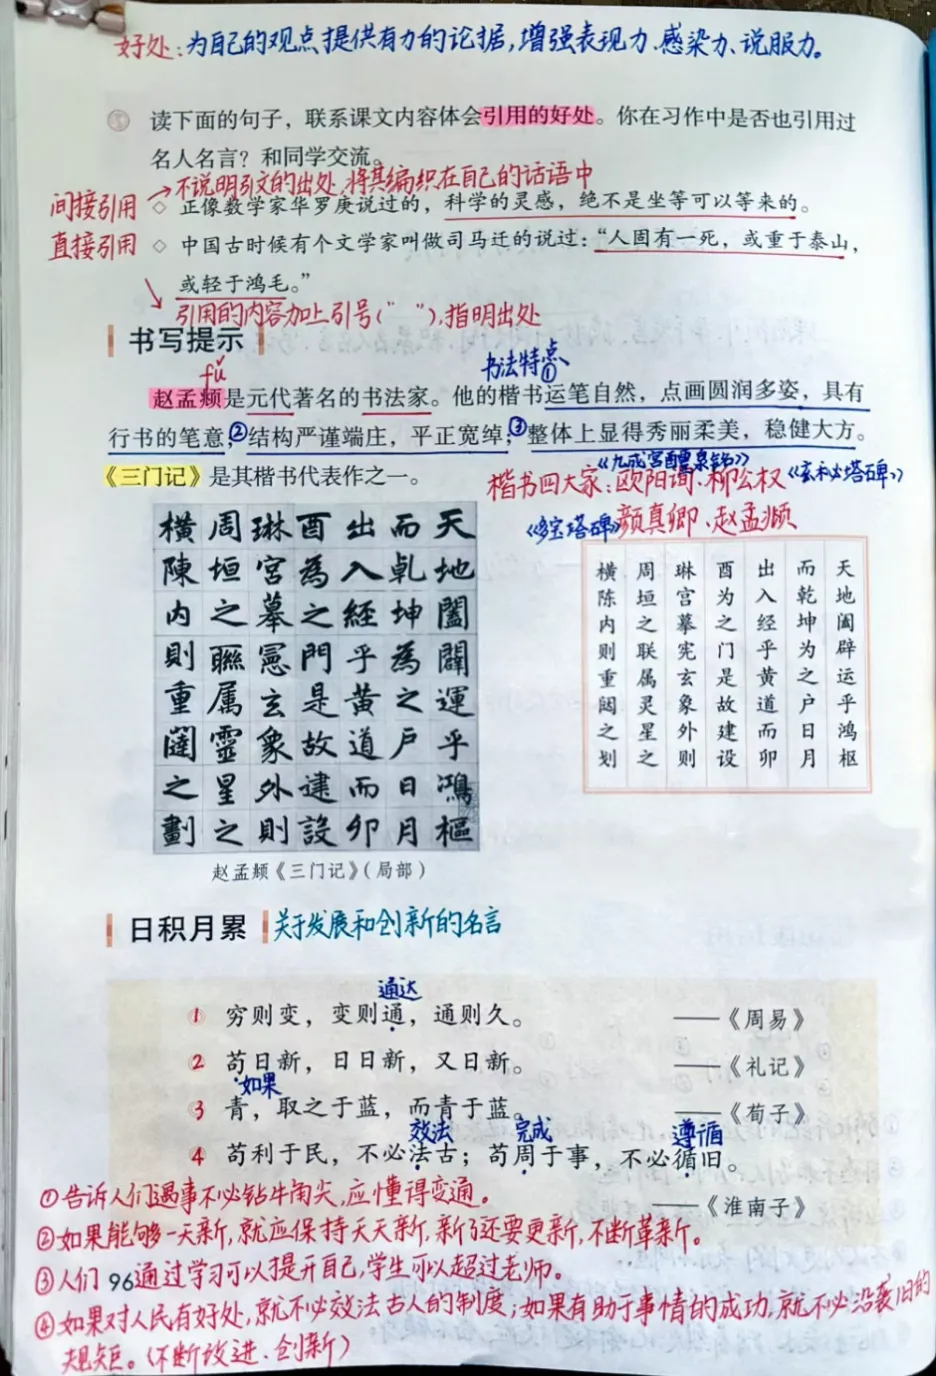 好处:为自己的观点提供有力的论据,增强表现力、感染力、说服力。
读下面的句子，联系课文内容体会引用的好处。你在习作中是否也引用过
名人名言？和同学交流。
不说明引文的出处,将其编织在自己的话语中
间接引用 ◇ 正像数学家华罗庚说过的，科学的灵感，绝不是坐等可以等来的。
直接引用 ◇ 中国古时候有个文学家叫做司马迁的说过：“人固有一死，或重于泰山，
或轻于鸿毛。”
引用的内容加上引号(“ ”),指明出处
书写提示
fǔ
书法特点
赵孟頫是元代著名的书法家。他的楷书①运笔自然，点画圆润多姿，具有
行书的笔意；②结构严谨端庄，平正宽绰；③整体上显得秀丽柔美，稳健大方。
《三门记》是其楷书代表作之一。
《九成宫醴泉铭》
楷书四大家:欧阳询、柳公权《玄秘塔碑》
《多宝塔碑》颜真卿、赵孟頫
天地闔闢運乎鴻樞
而乾坤為之戶日月
出入經乎黃道而卯
酉為之門是故建設
琳宮摹憲玄象外則
周垣之聯属靈星之
橫陳内則重闥之劃
天地阖辟运乎鸿枢
而乾坤为之户日月
出入经乎黄道而卯
酉为之门是故建设
琳宫摹宪玄象外则
周垣之联属灵星之
横陈内则重闼之划
赵孟頫《三门记》（局部）
日积月累 关于发展和创新的名言
通达
1 穷则变，变则通，通则久。 ——《周易》
2 苟日新，日日新，又日新。 ——《礼记》
如果
3 青，取之于蓝，而青于蓝。 ——《荀子》
效法 完成 遵循
4 苟利于民，不必法古；苟周于事，不必循旧。
——《淮南子》
①告诉人们遇事不必钻牛角尖,应懂得变通。
②如果能够一天新,就应保持天天新,新了还要更新,不断革新。
③人们通过学习可以提升自己,学生可以超过老师。
96
④如果对人民有好处,就不必效法古人的制度;如果有助于事情的成功,就不必沿袭旧的
规矩。(不断改进、创新)